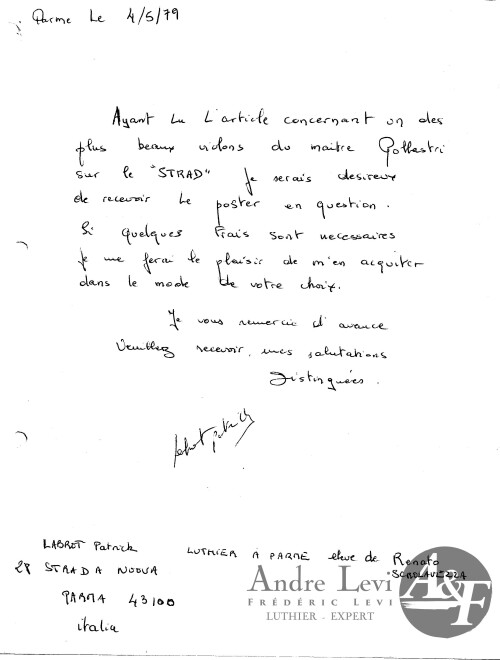 Parme Le 4/5/79
Ayant Lu L'article concernant un des
plus beaux violons du maitre Gollastri
sur le "STRAD" Je serais desireux
de recevoir le poster en question.
Si quelques frais sont necessaires
Je me ferai le plaisir de m'en acquiter
dans le mode de votre choix.
Je vous remercie d'avance
Veuillez recevoir, mes salutations
Distinguées.
LABRET Patrick LUTHIER A PARME eleve de Renato
28 STRADA NUOVA SCROLLAVEZZA
PARMA 43100
italia
Andre Levi
FRÉDÉRIC LEVI
LUTHIER - EXPERT
A&F